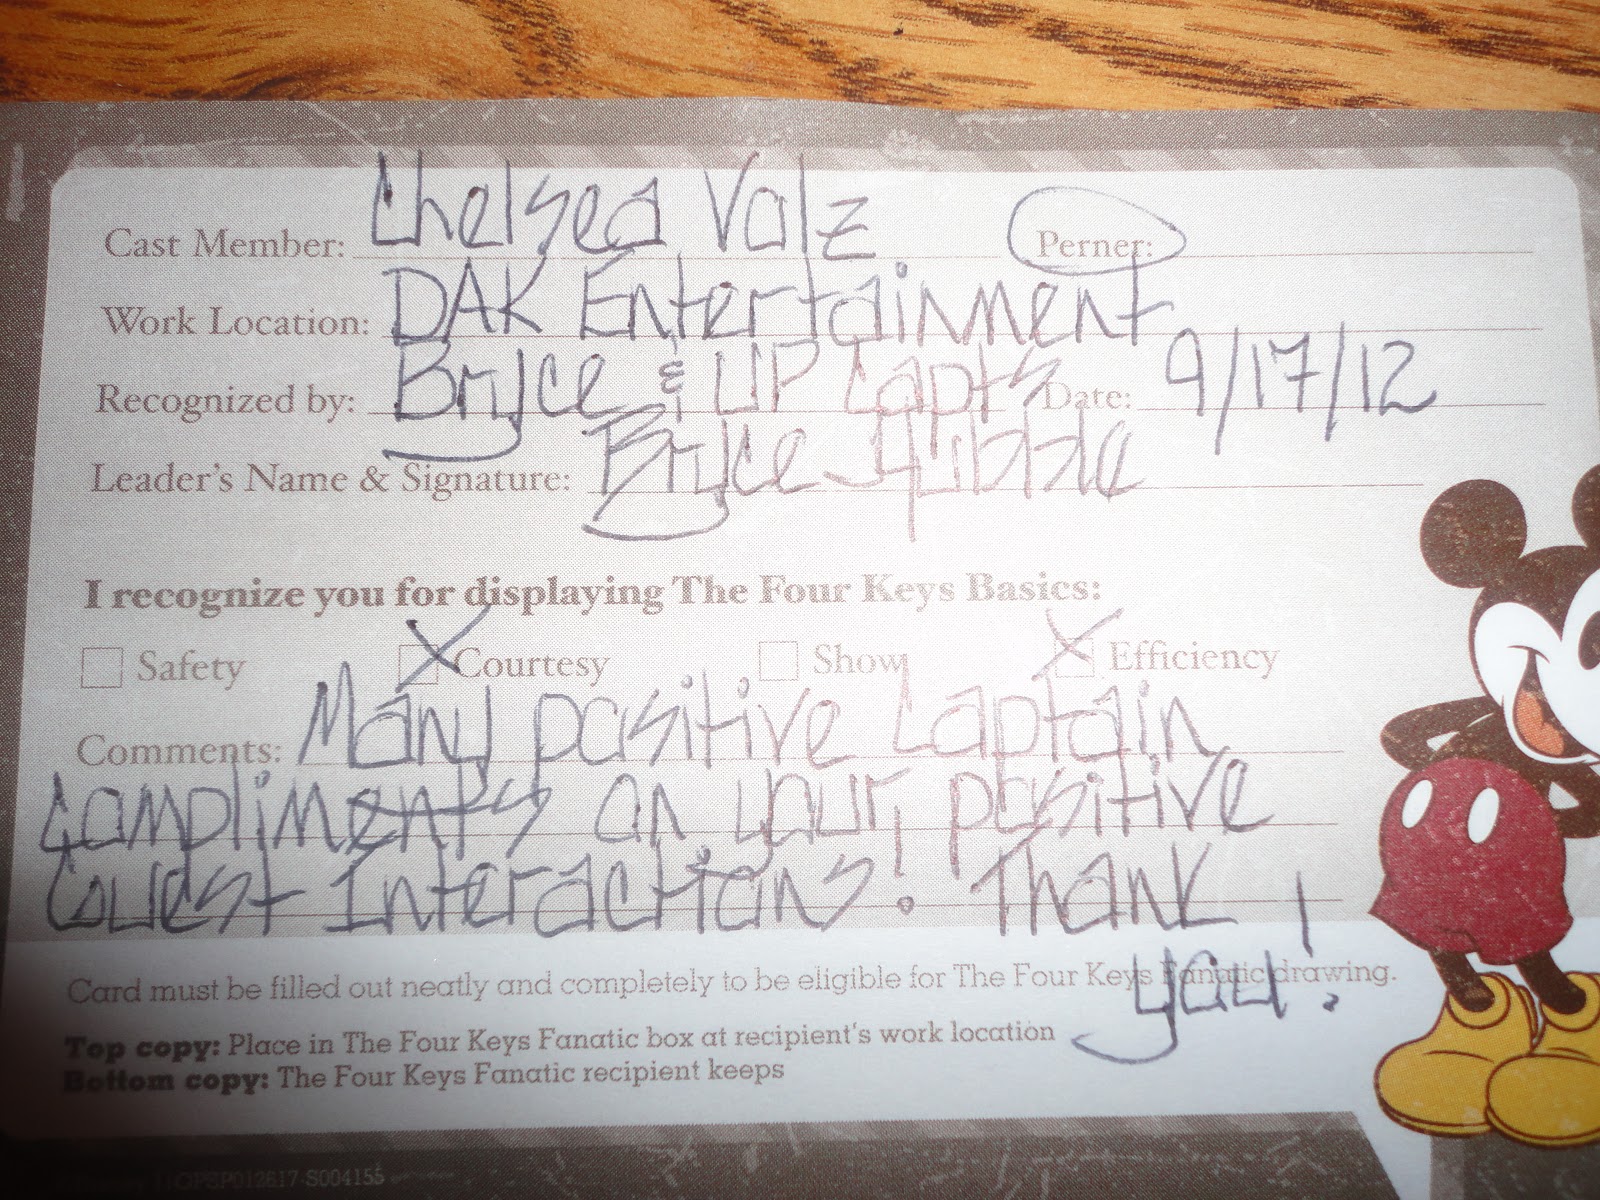 Cast Member: Chelsea Volz Perner:
Work Location: DAK Entertainment
Recognized by: Bryce & UP Capts Date: 9/17/12
Leader's Name & Signature: Bryce
I recognize you for displaying The Four Keys Basics:
Safety X Courtesy Show X Efficiency
Comments: Many positive Captain
Compliments on your positive
Guest Interactions! Thank
you!
Card must be filled out neatly and completely to be eligible for The Four Keys Fanatic drawing.
Top copy: Place in The Four Keys Fanatic box at recipient's work location
Bottom copy: The Four Keys Fanatic recipient keeps
S004155